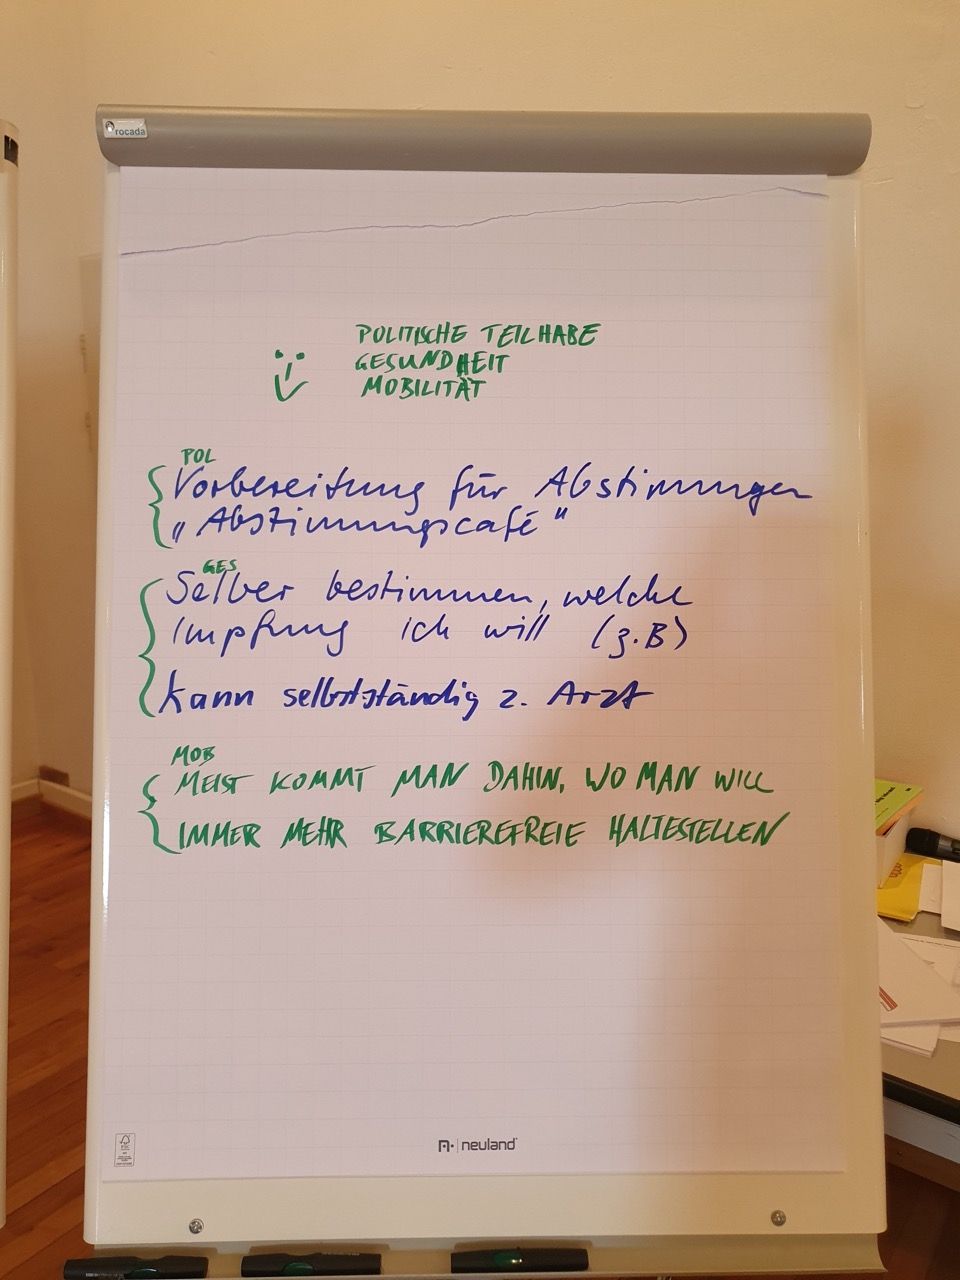 rocada
POLITISCHE TEILHABE
GESUNDHEIT
MOBILITÄT
POL
Vorbereitung für Abstimmungen
„Abstimmungscafé"
GES
Selber bestimmen, welche
Impfung ich will (z.B)
kann selbstständig z. Arzt
MOB
MEIST KOMMT MAN DAHIN, WO MAN WILL
IMMER MEHR BARRIEREFREIE HALTESTELLEN
neuland